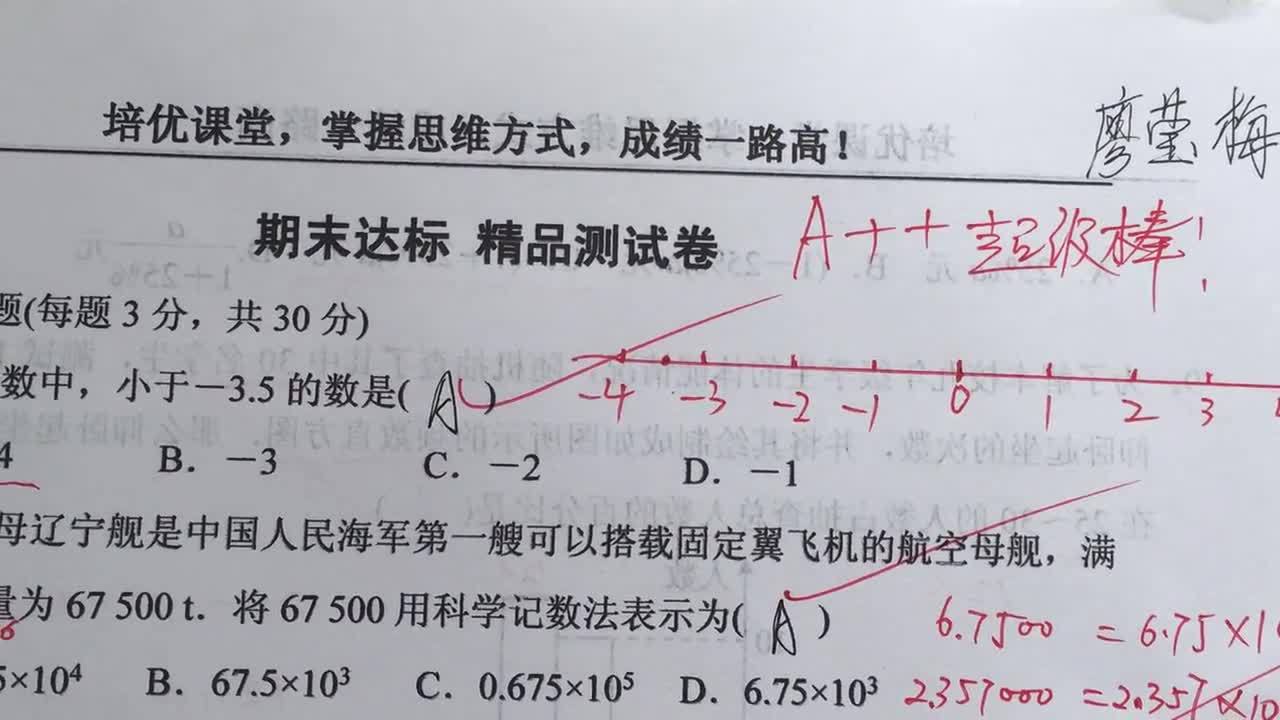 培优课堂，掌握思维方式，成绩一路高！
廖莹梅
期末达标 精品测试卷
A++ 超级棒！
题(每题 3 分，共 30 分)
数中，小于－3.5 的数是( A )
-4 -3 -2 -1 0 1 2 3
4 B. －3 C. －2 D. －1
母辽宁舰是中国人民海军第一艘可以搭载固定翼飞机的航空母舰，满
量为 67 500 t. 将 67 500 用科学记数法表示为( A )
6.7500 = 6.75×10
5×10⁴ B. 67.5×10³ C. 0.675×10⁵ D. 6.75×10³
2.357000 = 2.357×10